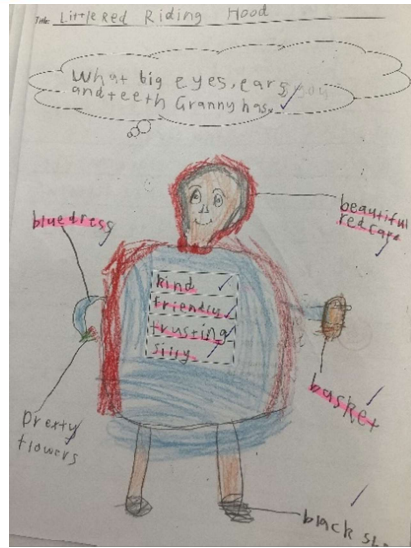 Title: Little Red Riding Hood
What big eyes, ears
and teeth Granny has
blue dress
beautiful
red cape
kind
friendly
trusting
silly
basket
Pretty
flowers
black